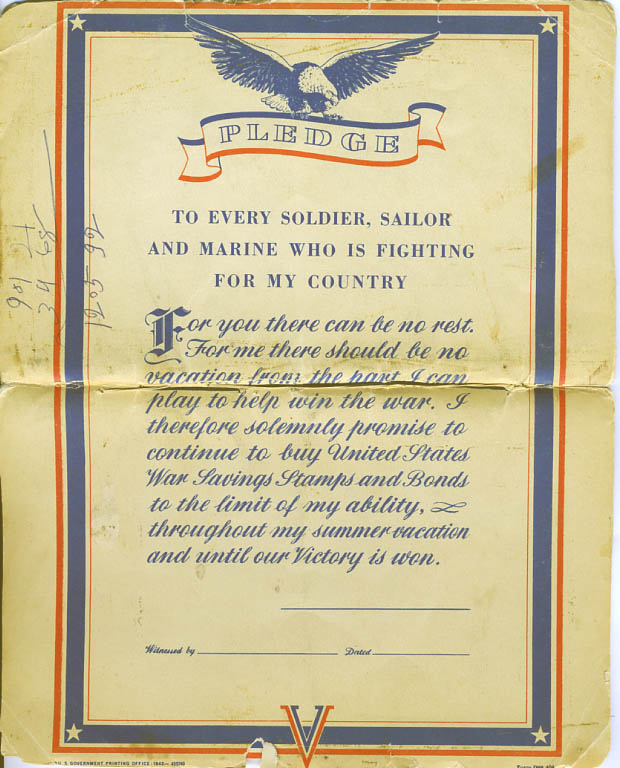 PLEDGE
TO EVERY SOLDIER, SAILOR
AND MARINE WHO IS FIGHTING
FOR MY COUNTRY
For you there can be no rest.
For me there should be no
vacation from the part I can
play to help win the war. I
therefore solemnly promise to
continue to buy United States
War Savings Stamps and Bonds
to the limit of my ability,
throughout my summer vacation
and until our Victory is won.
Witnessed by Dated
V
U. S. GOVERNMENT PRINTING OFFICE : 1942—
Form
1205 92